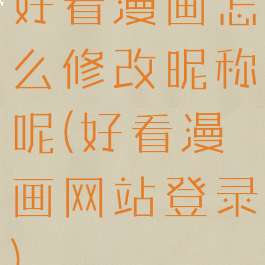 好看漫画怎
么修改昵称
呢(好看漫
画网站登录
)